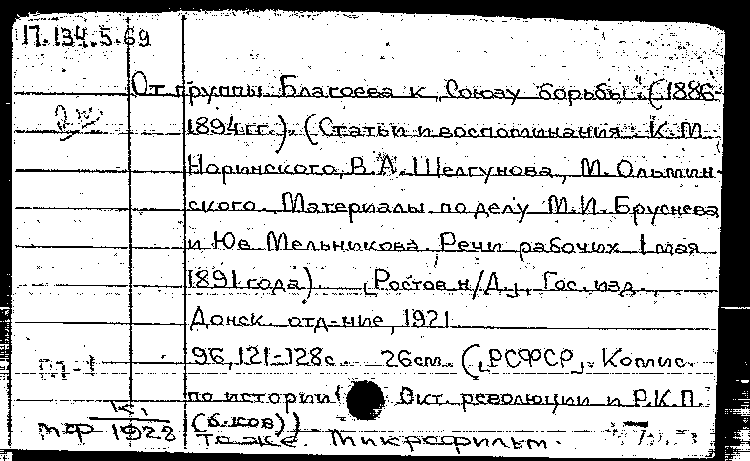 П.134.5.69
От группы Благоева к „Союзу борьбы". (1886-
1894 гг.). (Статьи и воспоминания К.М.
Норинского, В.А. Шелгунова, М. Ольмин-
ского. Материалы по делу М.И. Бруснева
и Юв. Мельникова. Речи рабочих 1 мая
1891 года). [Ростов н/Д.], Гос. изд.
Донск. отд-ние, 1921.
96, 121-128с. 26см. ([РСФСР]. Комис.
П.7-1
по истории Окт. революции и Р.К.П.
К1
(б-ков))
мф 1922
То же. Микрофильм.